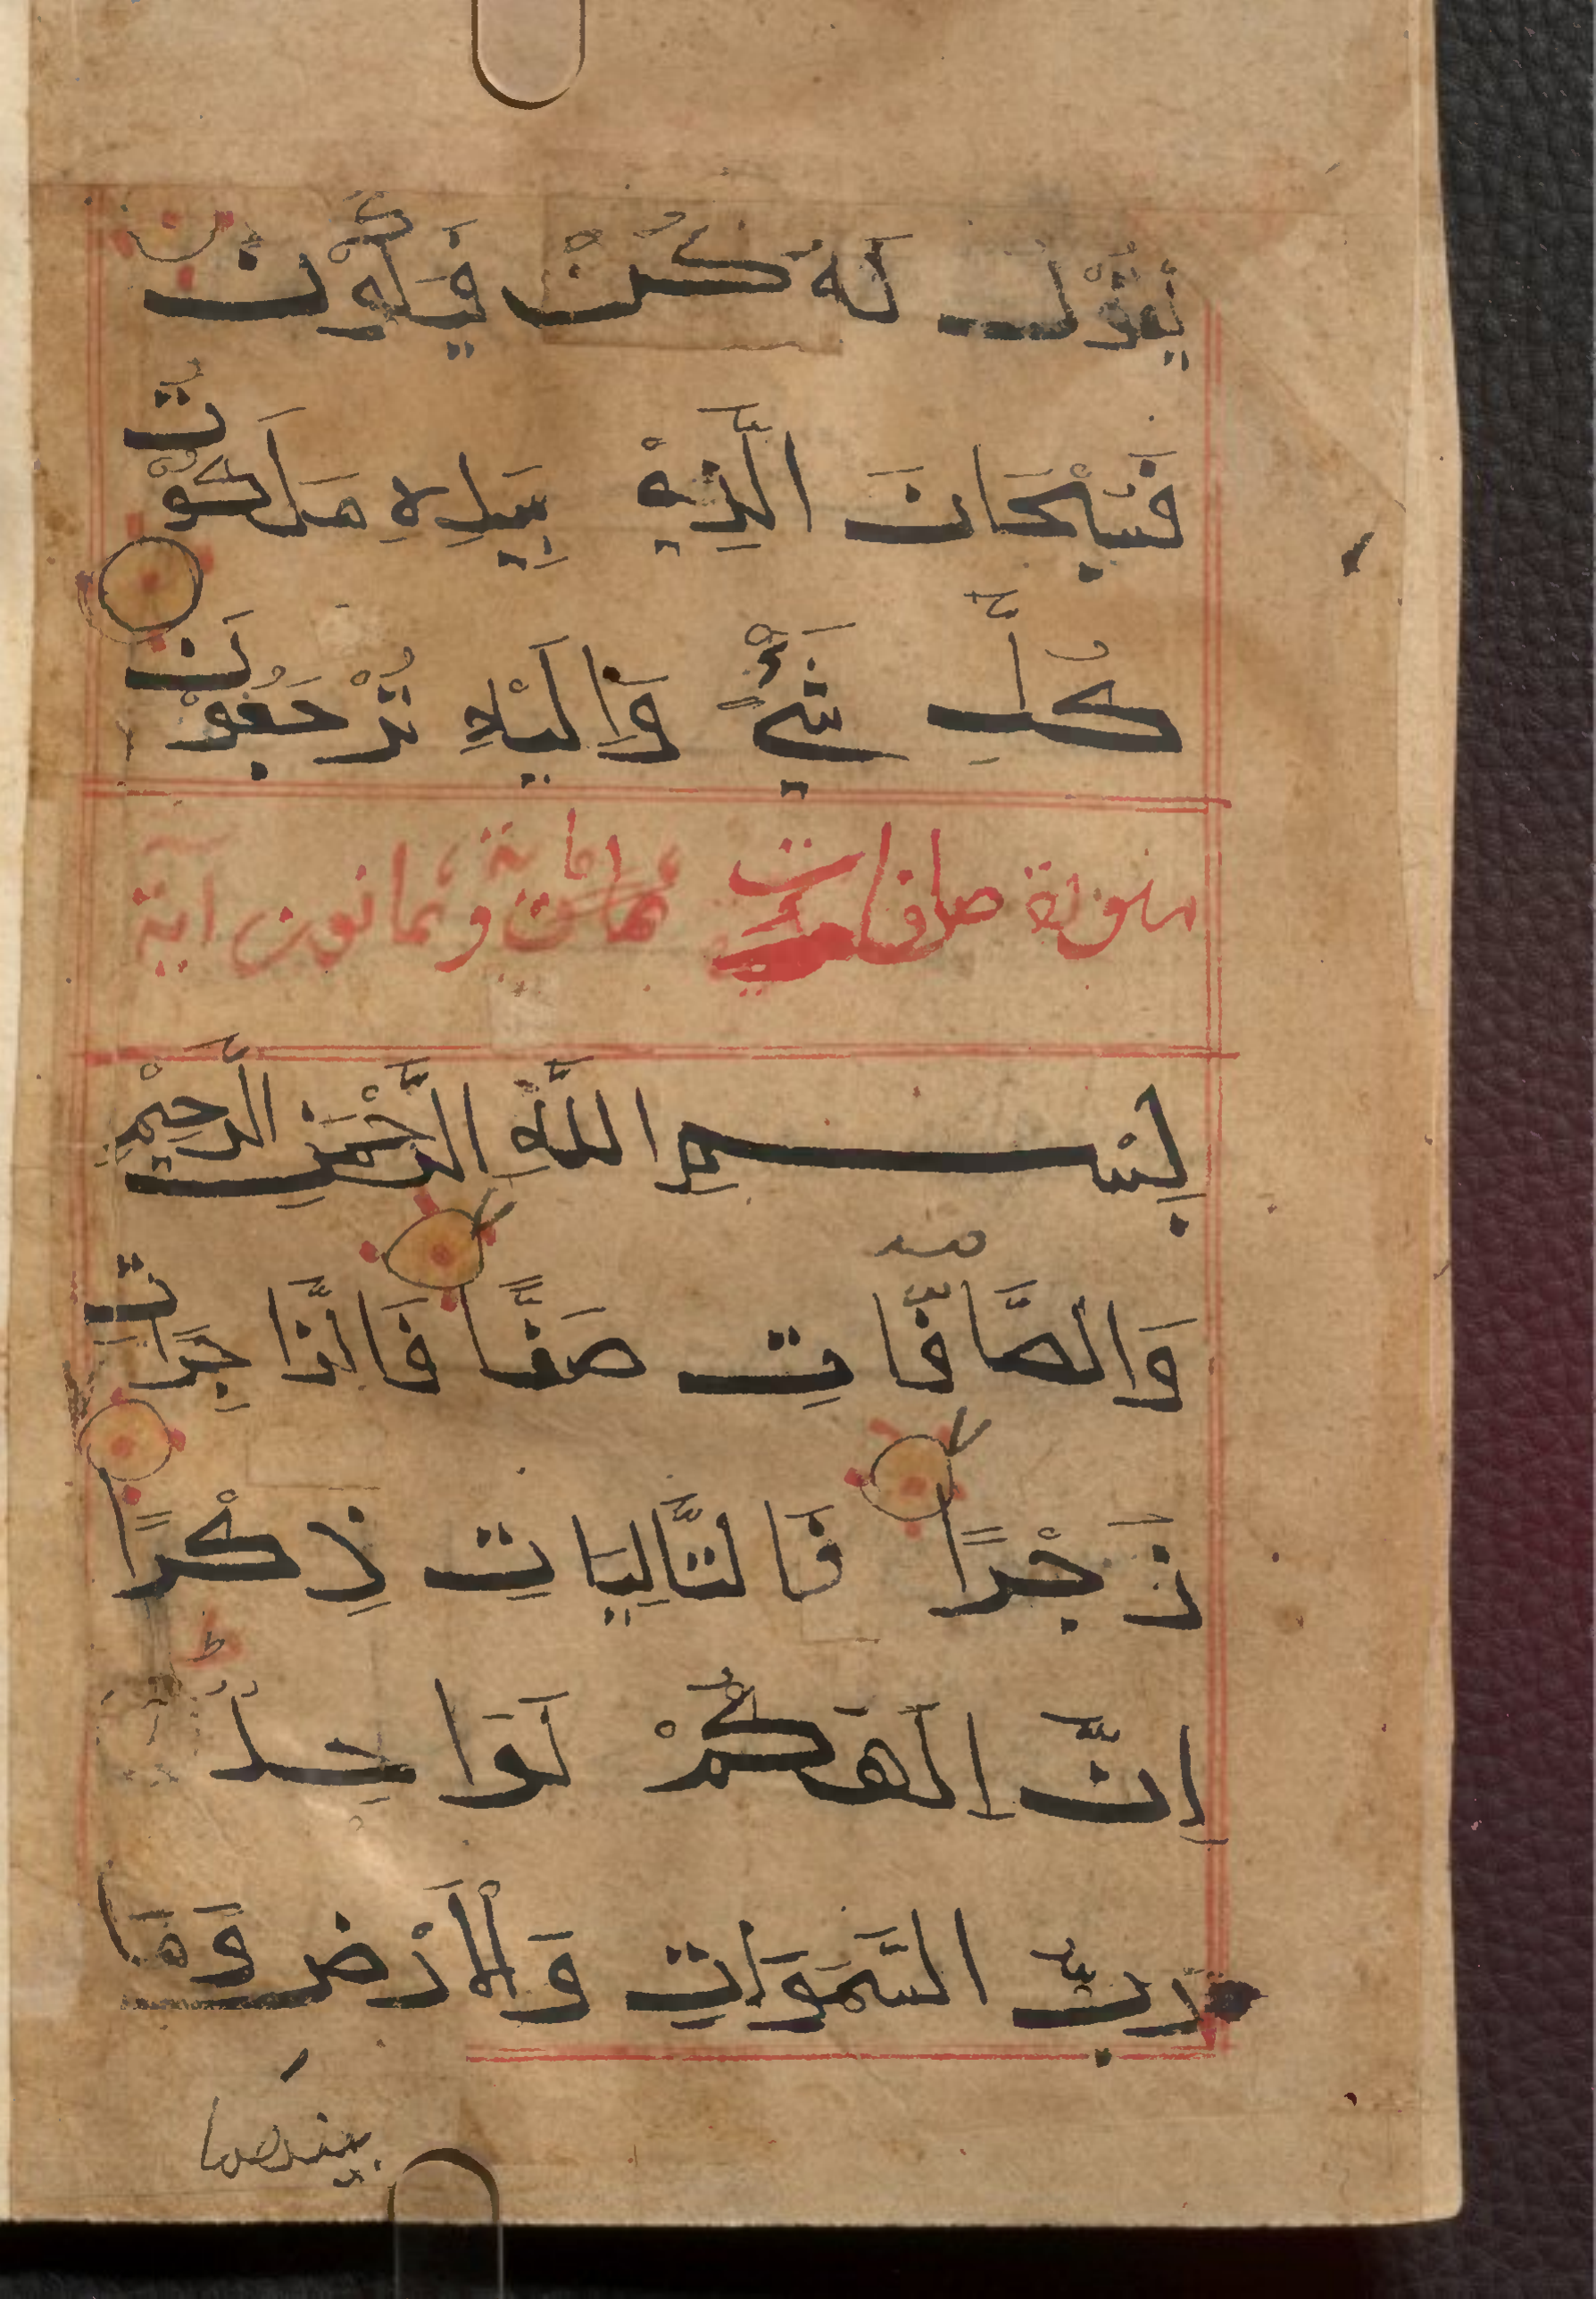 يَقُوْلَ لَهُ كُنْ فَيَكُوْنُ
فَسُبْحَانَ الَّذِيْ بِيَدِهِ مَلَكُوْتُ
كُلِّ شَيْءٍ وَاِلَيْهِ تُرْجَعُوْنَ
سورة صافات مائة وثمانون آية
بِسْمِ اللَّهِ الرَّحْمَنِ الرَّحِيْمِ
وَالصَّافَّاتِ صَفًّا فَالزَّاجِرَاتِ
زَجْرًا فَالتَّالِيَاتِ ذِكْرًا
ط
اِنَّ اِلَهَكُمْ لَوَاحِدٌ
رَبُّ السَّمَوَاتِ وَالْاَرْضِ وَمَا
بينهما